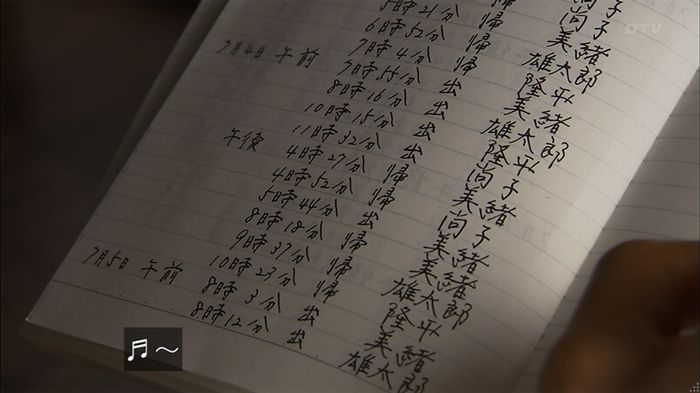 尚子
5時21分 帰 美緒
6時52分 帰 雄太郎
7時4分 帰 隆平
7月4日 午前 7時55分 出 美緒
8時16分 出 雄太郎
10時15分 出 隆平
11時32分 出 尚子
午後 4時27分 帰 美緒
4時52分 帰 尚子
5時44分 出 美緒
8時18分 帰 美緒
9時37分 帰 雄太郎
10時23分 帰 隆平
7月5日 午前 8時3分 出 美緒
8時12分 出 雄太郎
♬〜